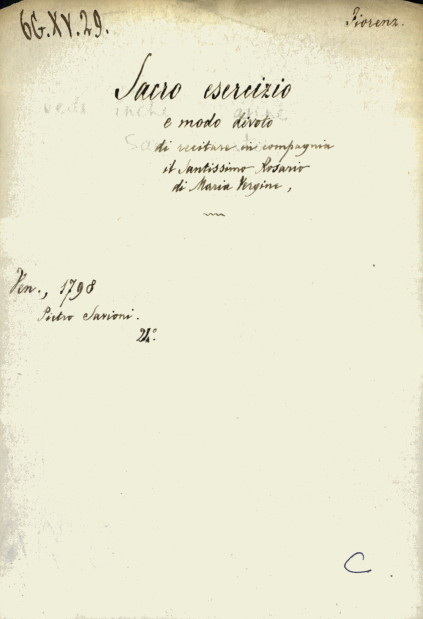 6G.XV.29.
Fiorenz.
Sacro esercizio
e modo divoto
di recitare in compagnia
il Santissimo Rosario
di Maria Vergine,
Ven., 1798
Pietro Savioni.
24.º
C